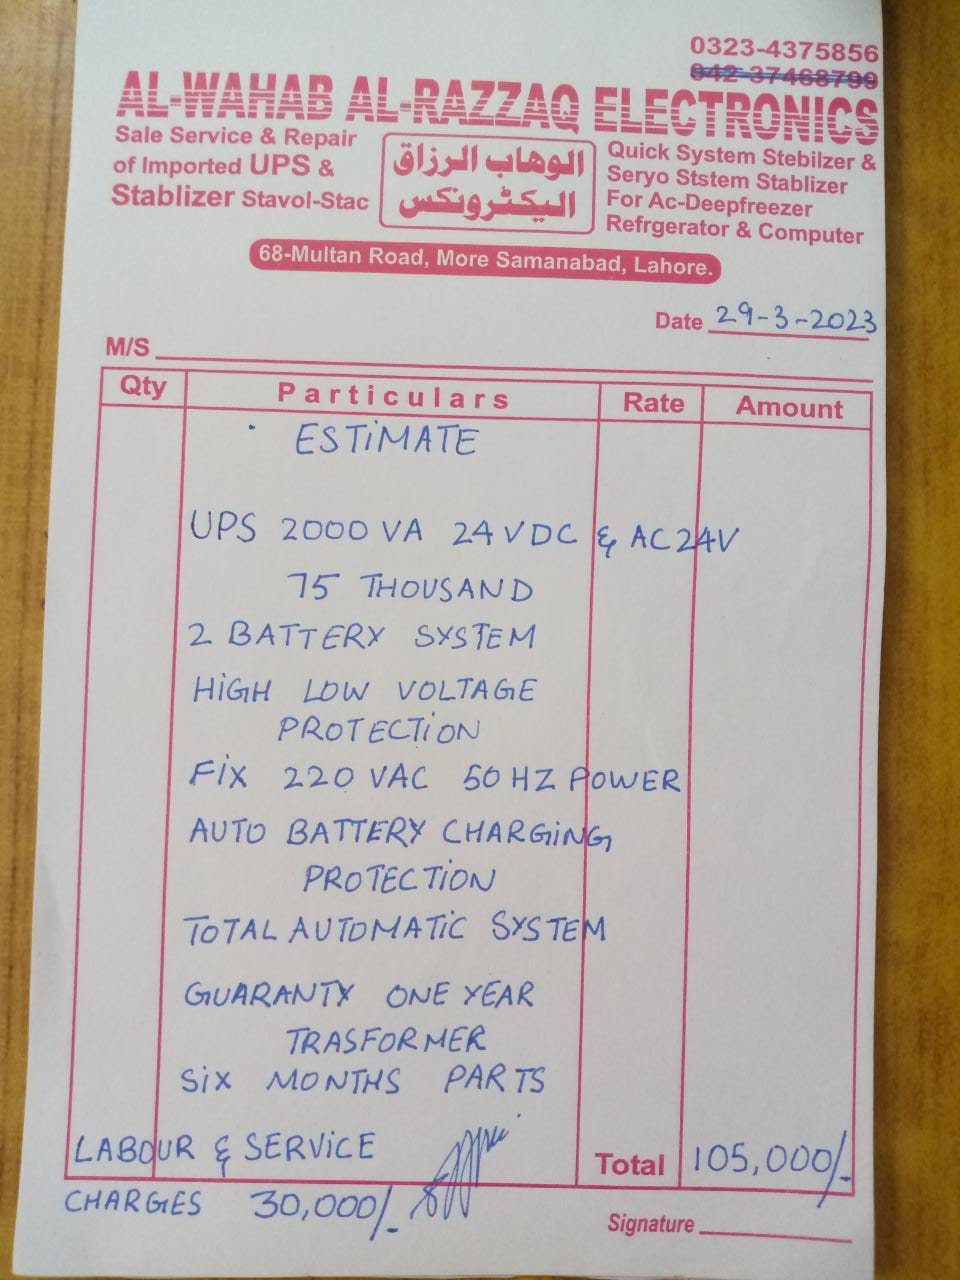 0323-4375856
042-37468799
AL-WAHAB AL-RAZZAQ ELECTRONICS
Sale Service & Repair
of Imported UPS &
Stablizer Stavol-Stac
الوهاب الرزاق
الیکٹرونکس
Quick System Stebilzer &
Seryo Ststem Stablizer
For Ac-Deepfreezer
Refrgerator & Computer
68-Multan Road, More Samanabad, Lahore.
Date 29-3-2023
M/S
Qty Particulars Rate Amount
ESTIMATE
UPS 2000 VA 24 VDC & AC 24V
75 THOUSAND
2 BATTERY SYSTEM
HIGH LOW VOLTAGE
PROTECTION
FIX 220 VAC 50 HZ POWER
AUTO BATTERY CHARGING
PROTECTION
TOTAL AUTOMATIC SYSTEM
GUARANTY ONE YEAR
TRASFORMER
SIX MONTHS PARTS
LABOUR & SERVICE
Total 105,000/-
CHARGES 30,000/-
Signature